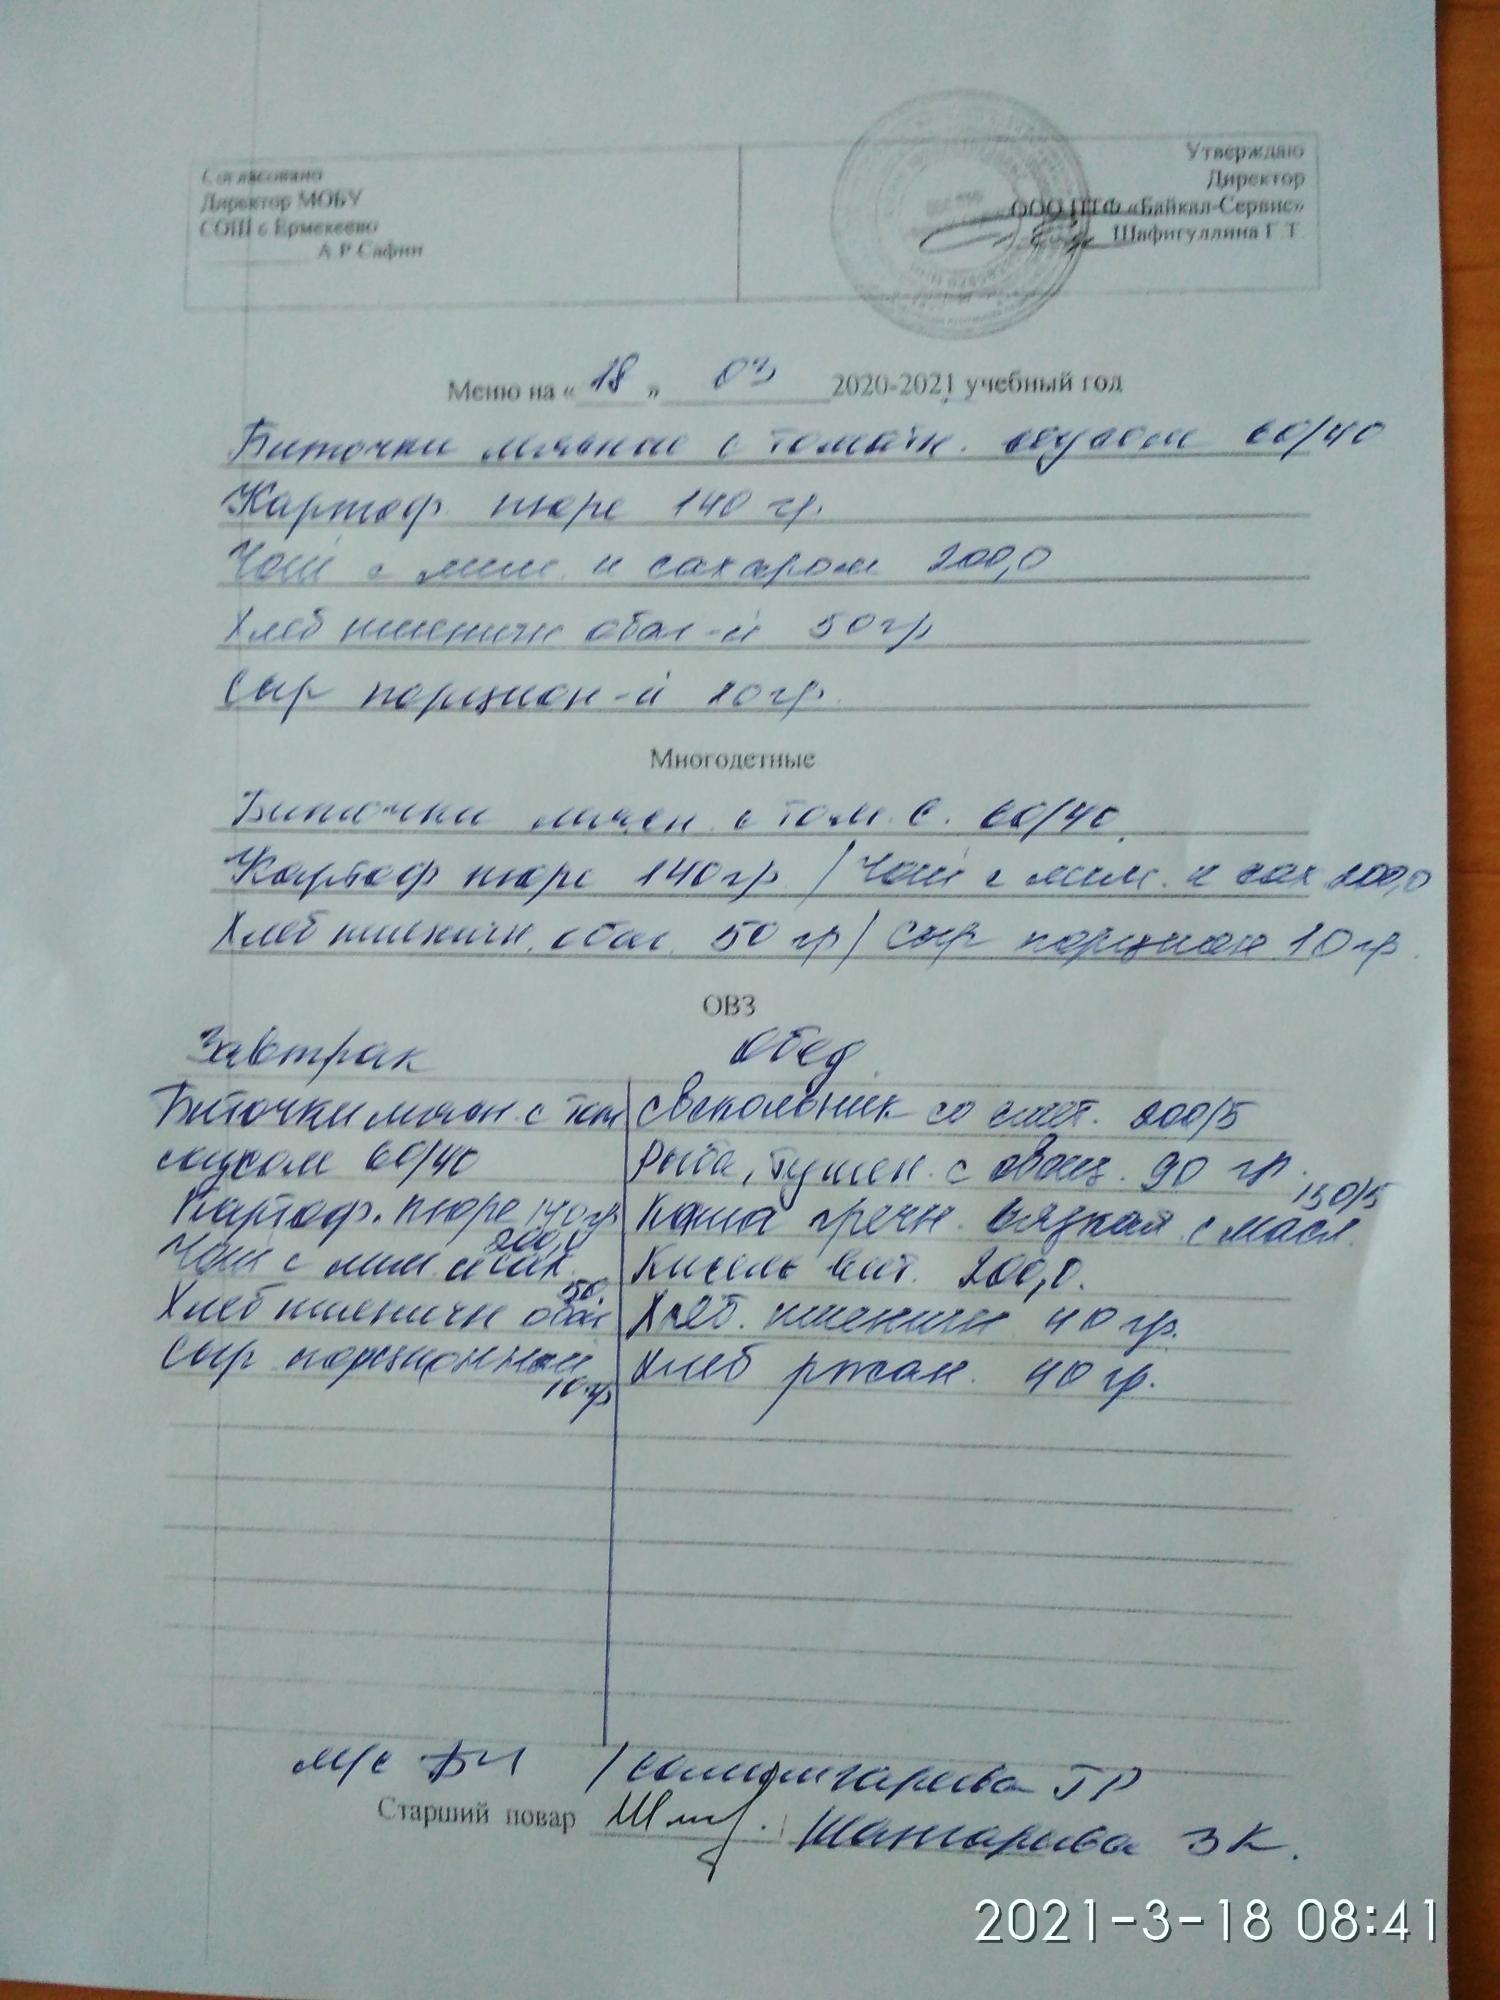 Согласовано
Директор МОБУ
СОШ с Ермекеево
А Р Сафин
Утверждаю
Директор
ООО ППФ «Байкал-Сервис»
Шафигуллина Г Т
Меню на « 18 » 03 2020-2021 учебный год
Биточки мясные с томатн. соусом 60/40
Картоф пюре 140 гр.
Чай с лим. и сахаром 200,0
Хлеб пшеничн обог-й 50 гр
Сыр порцион-й 10 гр.
Многодетные
Биточки мясн с том. с. 60/40
Картоф пюре 140 гр / Чай с лим. и сах 200,0
Хлеб пшеничн. обог 50 гр / Сыр порцион 10 гр.
ОВЗ
Завтрак
Биточки мясн. с том
соусом 60/40
Картоф. пюре 140 гр
Чай с лим и сах. 200,0
Хлеб пшеничн обог 50.
Сыр порционный
10 гр
Обед
Свекольник со смет. 200/5
Рыба, тушен. с овощ. 90 гр.
Каша гречн. вязкая с масл. 150/5
Кисель вит. 200,0.
Хлеб. пшеничн 40 гр.
Хлеб ржан. 40 гр.
м/с / Салимгареева ГР
Старший повар Шангареева З К.
2021-3-18 08:41